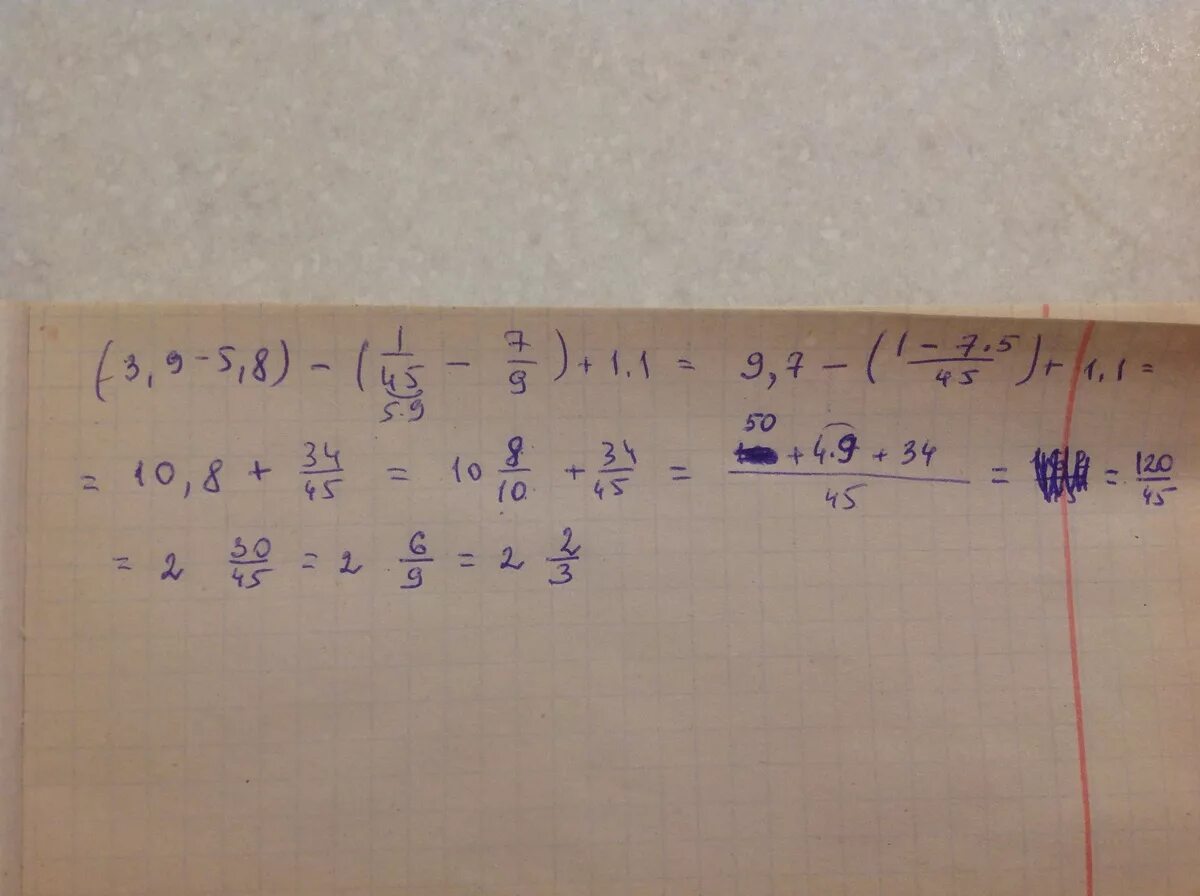 (-3,9-5,8) - (1/45 - 7/9) + 1.1 = 9,7 - (1-7.5/45) + 1,1 =
5.9
= 10,8 + 34/45 = 10 8/10 + 34/45 = 50 + 4.9 + 34/45 = = 120/45
= 2 30/45 = 2 6/9 = 2 2/3